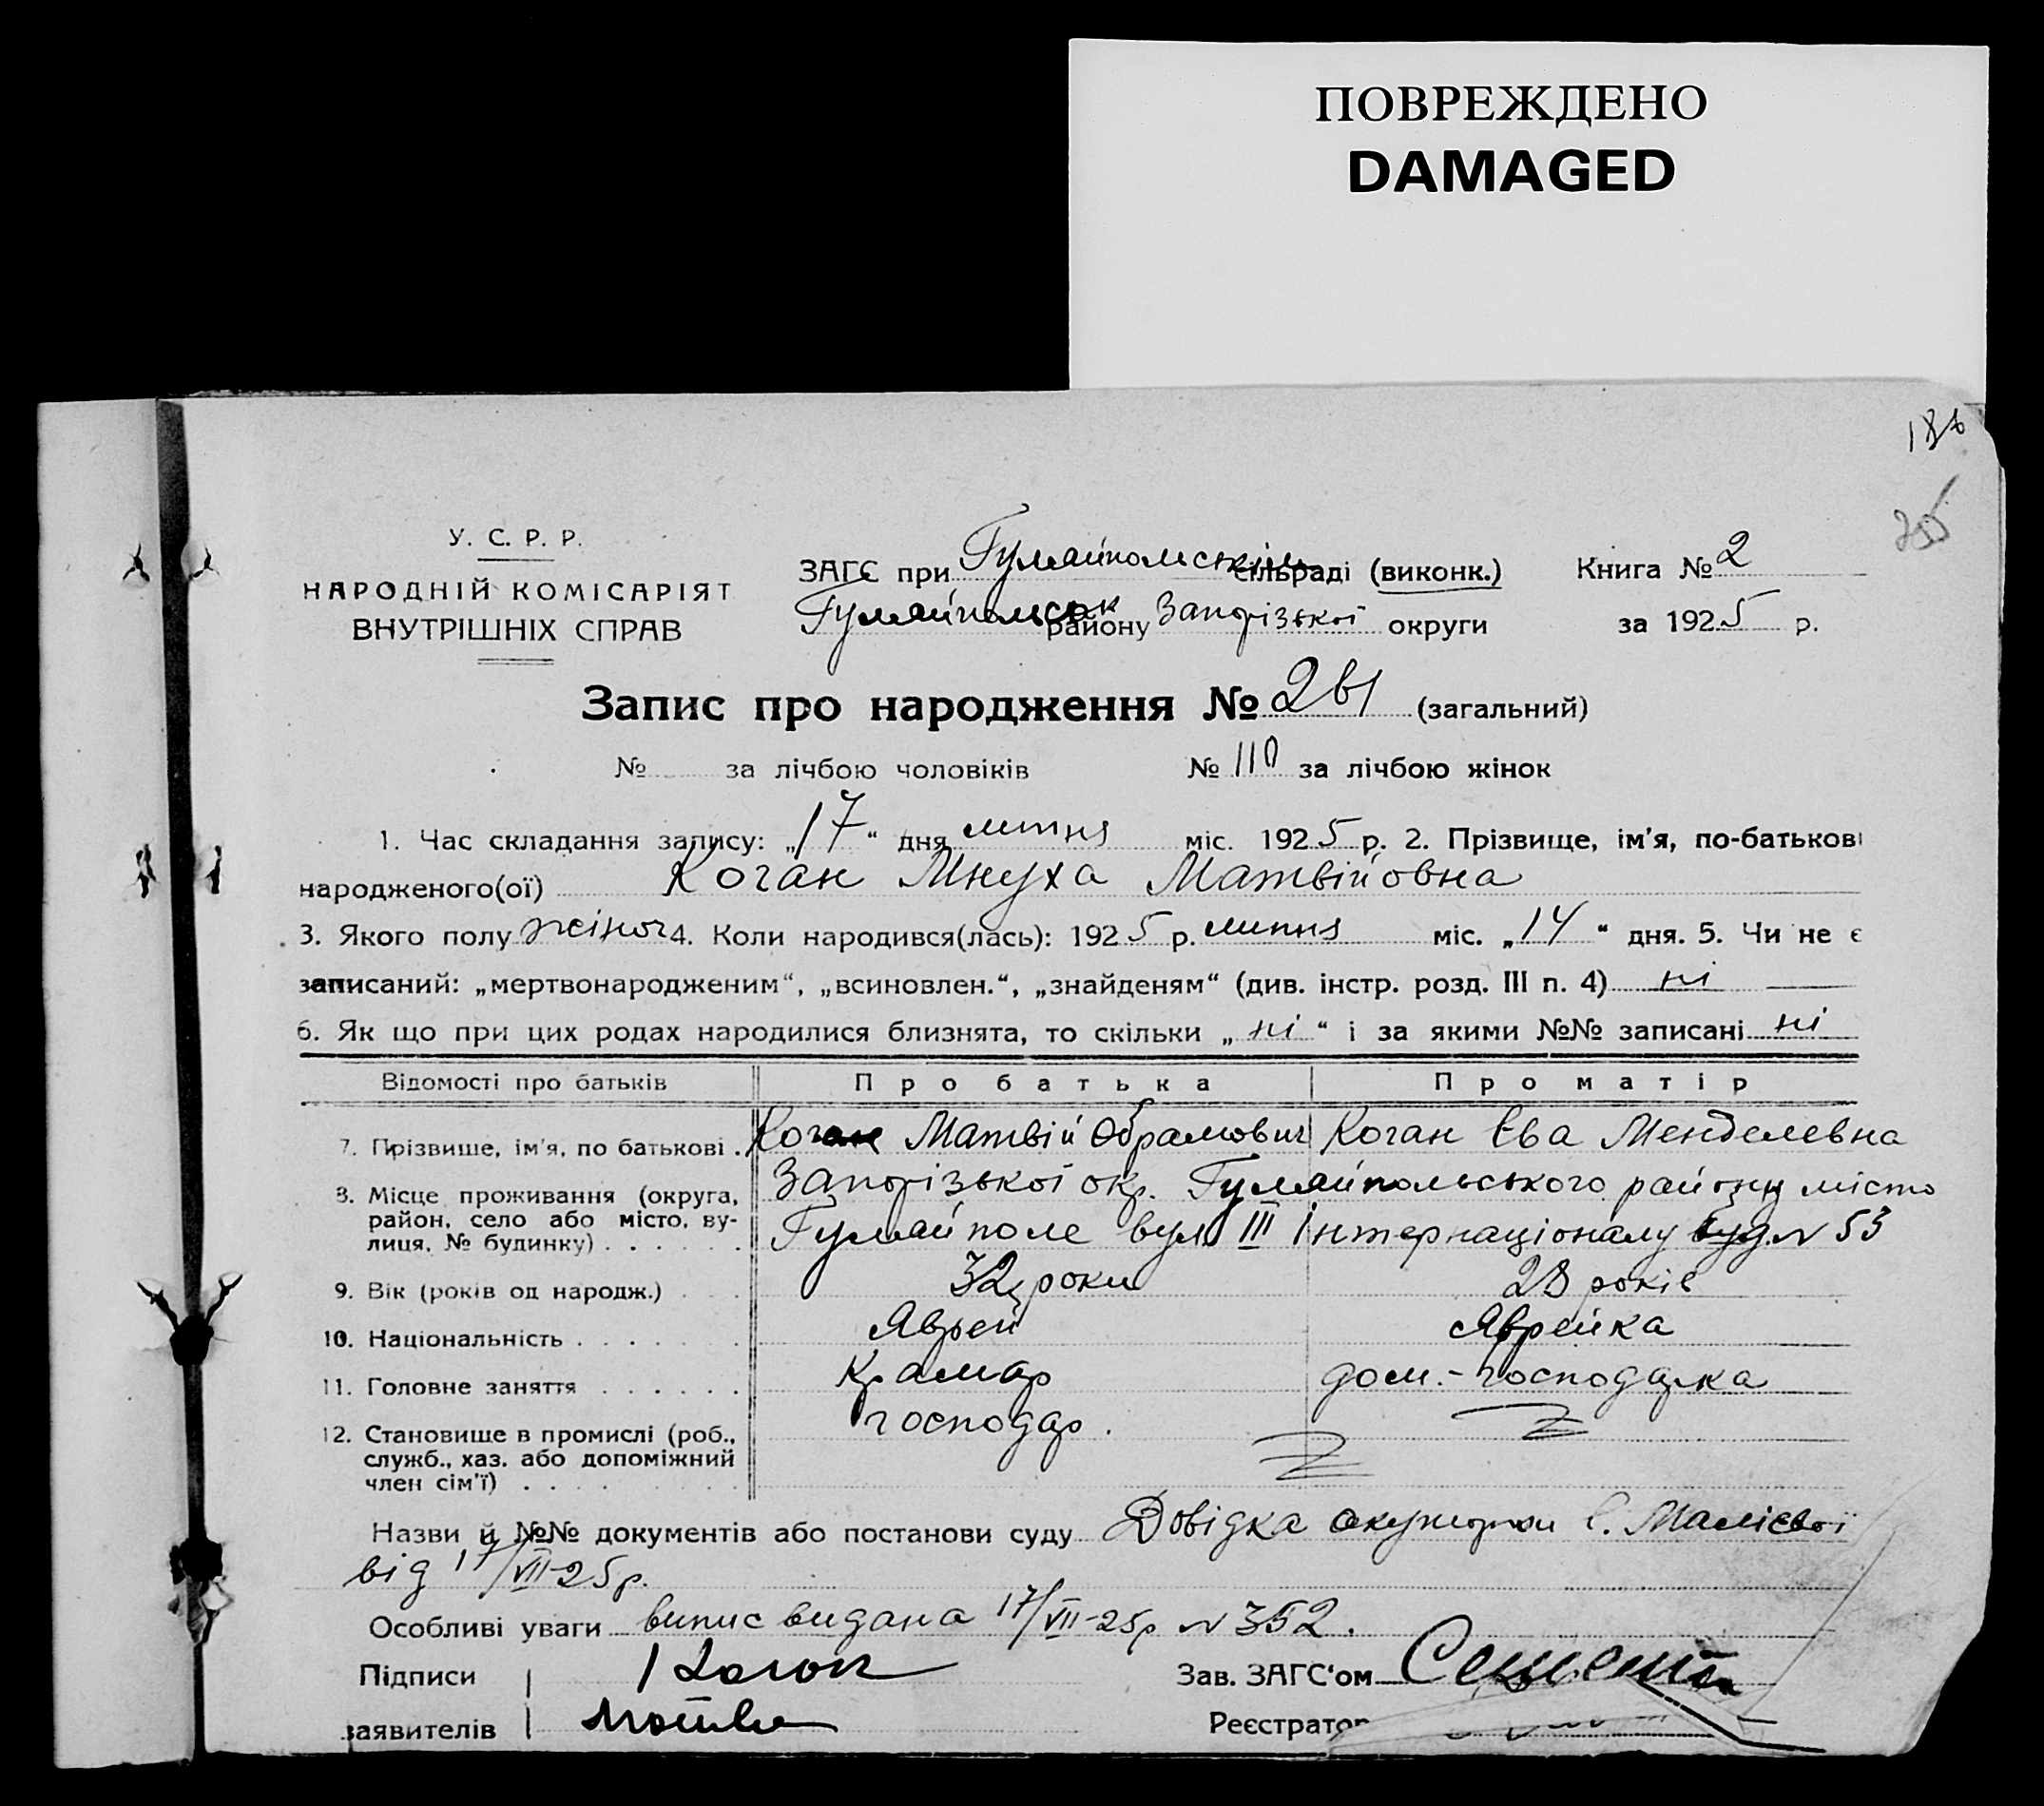 ПОВРЕЖДЕНО
DAMAGED
186
У. С. Р. Р.
НАРОДНІЙ КОМІСАРІЯТ
ВНУТРІШНІХ СПРАВ
ЗАГС при Гуляйпольськім сільраді (виконк.)
Гуляйпольськ району Запорізької округи
Книга № 2
за 1925 р.
Запис про народження № 261 (загальний)
№ за лічбою чоловіків № 110 за лічбою жінок
1. Час складання запису: „17“ дня липня міс. 1925 р. 2. Прізвище, ім'я, по-батькові
народженого(ої) Коган Мнуха Матвійовна
3. Якого полу жіноч 4. Коли народився(лась): 1925 р. липня міс. „14“ дня. 5. Чи не є
записаний: „мертвонародженим“, „всиновлен.“, „знайденям“ (див. інстр. розд. III п. 4) ні
6. Як що при цих родах народилися близнята, то скільки „ні“ і за якими №№ записані ні
Відомості про батьків Про батька Про матір
7. Прізвище, ім'я, по батькові . Коган Матвій Обрамович Коган Ева Менделевна
8. Місце проживання (округа, район, село або місто, вулиця, № будинку) . . . . . . Запорізької окр. Гуляйпольського району місто
Гуляйполе вул III Інтернаціоналу буд. № 53
9. Вік (років од народж.) . . . 32 роки 28 років
10. Національність . . . . . . Яврей Яврейка
11. Головне заняття . . . . . . Крамар дом.-господарка
12. Становище в промислі (роб., служб., хаз. або допоміжний член сім'ї) . . . . господар.
Назви й №№ документів або постанови суду Довідка акушерки Є. Малієвої
від 17/VII-25р.
Особливі уваги випис видана 17/VII-25р № 352.
Підписи Коган Зав. ЗАГС'ом
заявителів Матвій Реєстратор